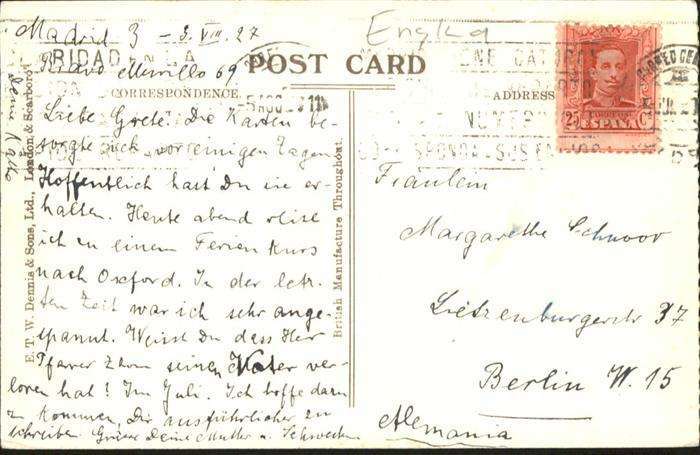 Madrid 3 - 3. VIII. 27
Bravo Murillo 69
Engka
POST CARD
CORRESPONDENCE.
ADDRESS
Liebe Grete. Die Karten be-
sorgte ich vor einigen Tagen.
Hoffentlich hast Du sie er-
halten. Heute abend reise
ich zu einem Ferien Kurs
nach Oxford. In der letz-
ten Zeit war ich sehr ange-
spannt. Weisst Du dass Herr
Pfarrer seinen Vater ver-
loren hat! Im Juli. Ich hoffe dazu
zu kommen, Dir ausführlicher zu
schreiben Grüsse Deine Mutter u. Schwester
Deine
E. T. W. Dennis & Sons, Ltd., London & Scarboro'
British Manufacture Throughout.
25 Cs
ESPAÑA
Fräulein
Margarethe Schnoor
Lietzenburgerstr 37
Berlin W. 15
Alemania